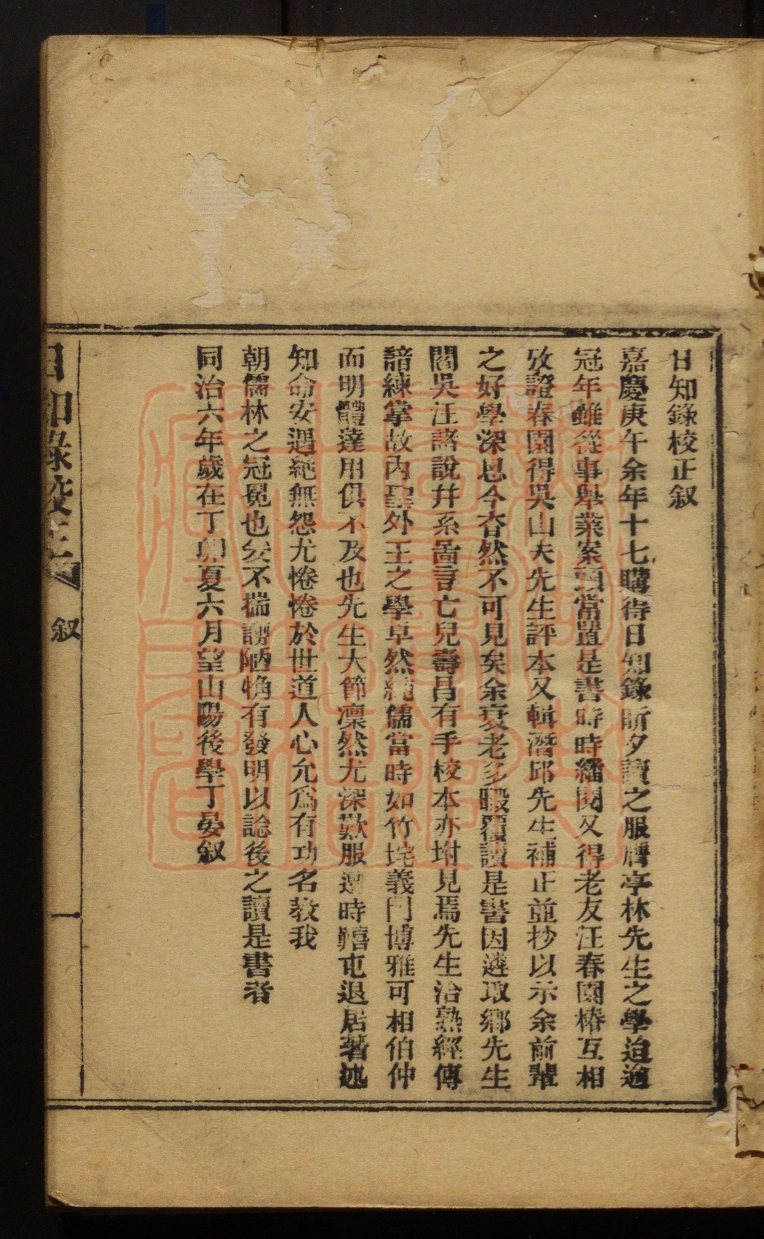 日知錄校正叙
嘉慶庚午余年十七購待日知錄昕夕讀之服膺亭林先生之學迨逾
冠年雖從事舉業案頭常置是書時時繙閱又得老友汪春園椿互相
攷證春園得吳山夫先生評本又輯潛邱先生補正並抄以示余前輩
之好學深思今杳然不可見矣余衰老多暇覆讀是書因遴取鄉先生
閻吳汪諸說幷系曷言亡兒壽昌有手校本亦坿見焉先生治熟經傳
諳練掌故內聖外王之學卓然純儒當時如竹垞義門博雅可相伯仲
而明體達用俱不及也先生大節凛然尤深歎服遭時艱屯退居著述
知命安遇絕無怨尤惓惓於世道人心允爲有功名敎我
朝儒林之冠冕也爰不揣謭陋牠有發明以諗後之讀是書者
同治六年歲在丁卯夏六月望山陽後學丁晏叙
日知錄校正
叙
一